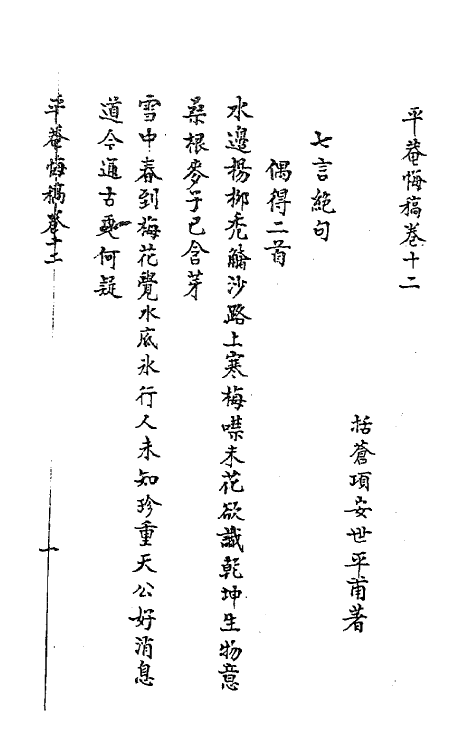 平菴悔稿卷十二
括蒼項安世平甫著
七言絶句
偶得二首
水邊楊柳禿觰沙路上寒梅噤未花欲識乾坤生物意
桑根麥子已含芽
雪中春到梅花覺水底氷行人未知珍重天公好消息
道今通古更何疑
平菴悔稿卷十二
一